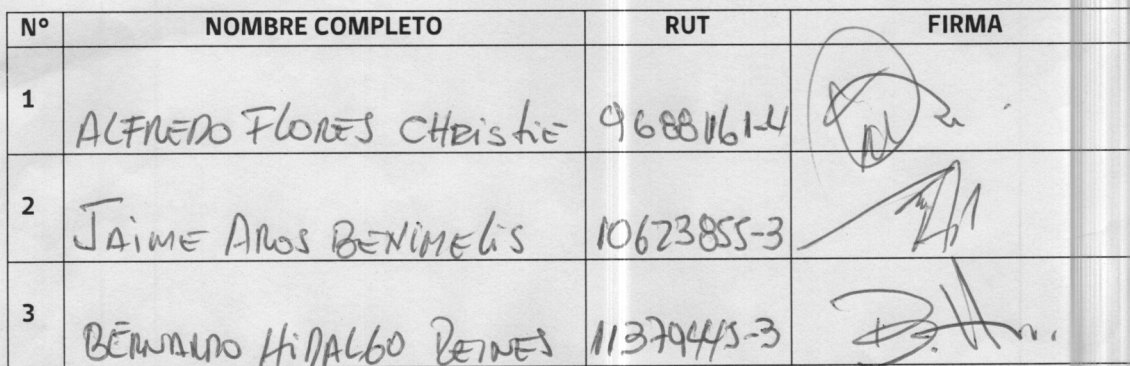 Nº NOMBRE COMPLETO RUT FIRMA
1 ALFREDO FLORES CHRistiE 9688161-4
2 JAiME AROS BENiMELiS 10623855-3
3 BERNARDO HiDALGO 11379445-3